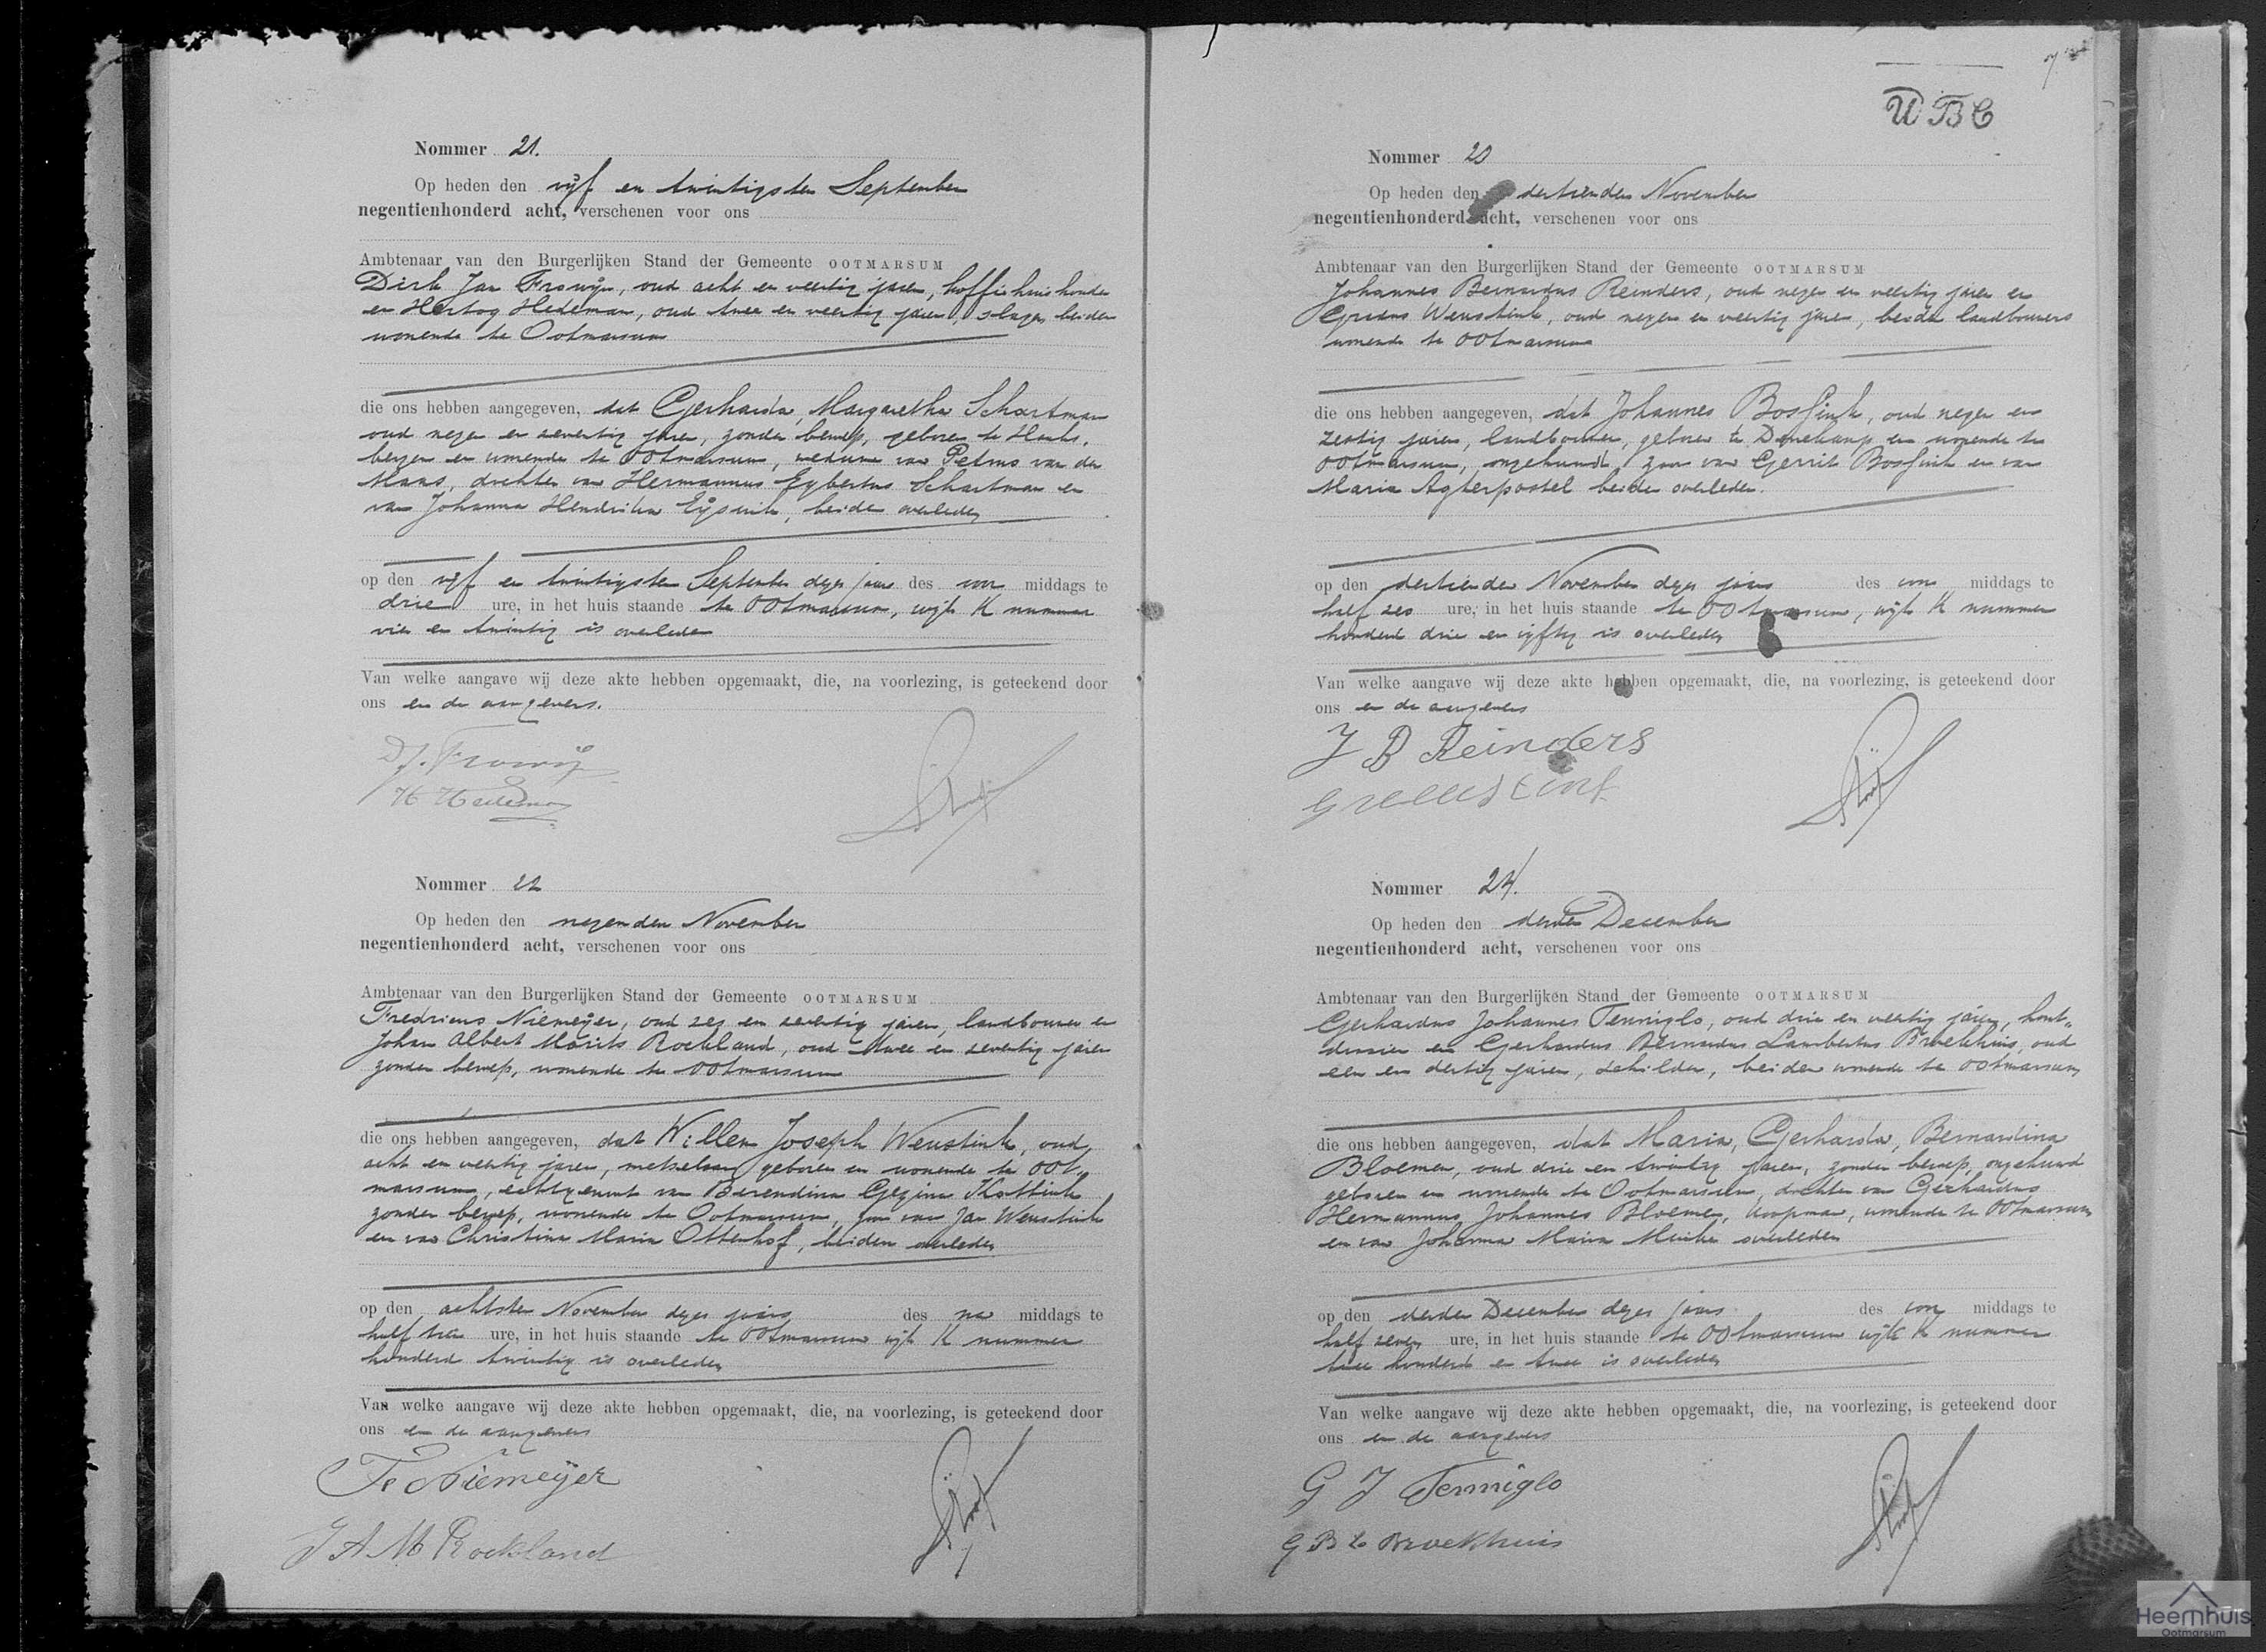 Nommer 21.
Op heden den vijf en twintigsten September
negentienhonderd acht, verschenen voor ons
Ambtenaar van den Burgerlijken Stand der Gemeente OOTMARSUM
Dirk Jan Frowijn, oud acht en veertig jaren, koffiehuishouder
en Hartog Hedeman, oud twee en veertig jaren, slager beiden
wonende te Ootmarsum
die ons hebben aangegeven, dat Gerharda, Margaretha Schartman
oud negen en zeventig jaren, zonder beroep, geboren te Haaks,
bergen en wonende te Ootmarsum, weduwe van Petrus van der
Maas, dochter van Hermannus Egbertus Schartman en
van Johanna Hendrika Eijsink, beiden overleden
op den vijf en twintigsten September dezes jaars des voor middags te
drie ure, in het huis staande te Ootmarsum, wijk K nummer
vier en twintig is overleden
Van welke aangave wij deze akte hebben opgemaakt, die, na voorlezing, is geteekend door
ons en de aangevers.
D.J. Frowijn
H Hedeman
Nommer 22
Op heden den negenden November
negentienhonderd acht, verschenen voor ons
Ambtenaar van den Burgerlijken Stand der Gemeente OOTMARSUM
Fredricus Niemeijer, oud zes en zeventig jaren, landbouwer en
Johan Albert Morits Rockland, oud twee en zeventig jaren
zonder beroep, wonende te Ootmarsum
die ons hebben aangegeven, dat Willem Joseph Weustink, oud
acht en veertig jaren, metselaar, geboren en wonende te Oot,,
marsum, echtgenoot van Berendina Gezina Kottink
zonder beroep, wonende te Ootmarsum, zoon van Jan Weustink
en van Christina Maria Ottenhof, beiden overleden
op den achtsten November dezes jaars des na middags te
half ure, in het huis staande te Ootmarsum wijk K nummer
honderd twintig is overleden
Van welke aangave wij deze akte hebben opgemaakt, die, na voorlezing, is geteekend door
ons en de aangevers
Fr Niemeijer
J A M Rockland
UBC
Nommer 23
Op heden den dertienden November
negentienhonderd acht, verschenen voor ons
Ambtenaar van den Burgerlijken Stand der Gemeente OOTMARSUM
Johannes Bernardus Reinders, oud negen en veertig jaren en
Gradus Weustink, oud negen en veertig jaren, beiden landbouwers
wonende te Ootmarsum
die ons hebben aangegeven, dat Johannes Bosfink, oud negen en
zestig jaren, landbouwer, geboren te Denekamp en wonende te
Ootmarsum, ongehuwd, zoon van Gerrit Bosfink en van
Maria Agterpostel beiden overleden.
op den dertienden November dezes jaars des voor middags te
half zes ure, in het huis staande te Ootmarsum, wijk K nummer
honderd drie en vijftig is overleden
Van welke aangave wij deze akte hebben opgemaakt, die, na voorlezing, is geteekend door
ons en de aangevers
J B Reinders
G Weustink
Nommer 24.
Op heden den derden December
negentienhonderd acht, verschenen voor ons
Ambtenaar van den Burgerlijken Stand der Gemeente OOTMARSUM
Gerhardus Johannes Tenniglo, oud drie en veertig jaren, hout,,
draaier en Gerhardus Bernardus Lambertus Broekhuis, oud
een en dertig jaren, schilder, beiden wonende te Ootmarsum
die ons hebben aangegeven, dat Maria, Gerharda, Bernardina
Bloemen, oud drie en twintig jaren, zonder beroep, ongehuwd
geboren en wonende te Ootmarsum, dochter van Gerhardus
Hermannus Johannes Bloemen, koopman, wonende te Ootmarsum
en van Johanna Maria overleden
op den derden December dezes jaars des voor middags te
half zeven ure, in het huis staande te Ootmarsum wijk K nummer
twee honderd en twee is overleden
Van welke aangave wij deze akte hebben opgemaakt, die, na voorlezing, is geteekend door
ons en de aangevers
G J Tenniglo
G B L Broekhuis
Heemhuis
Ootmarsum